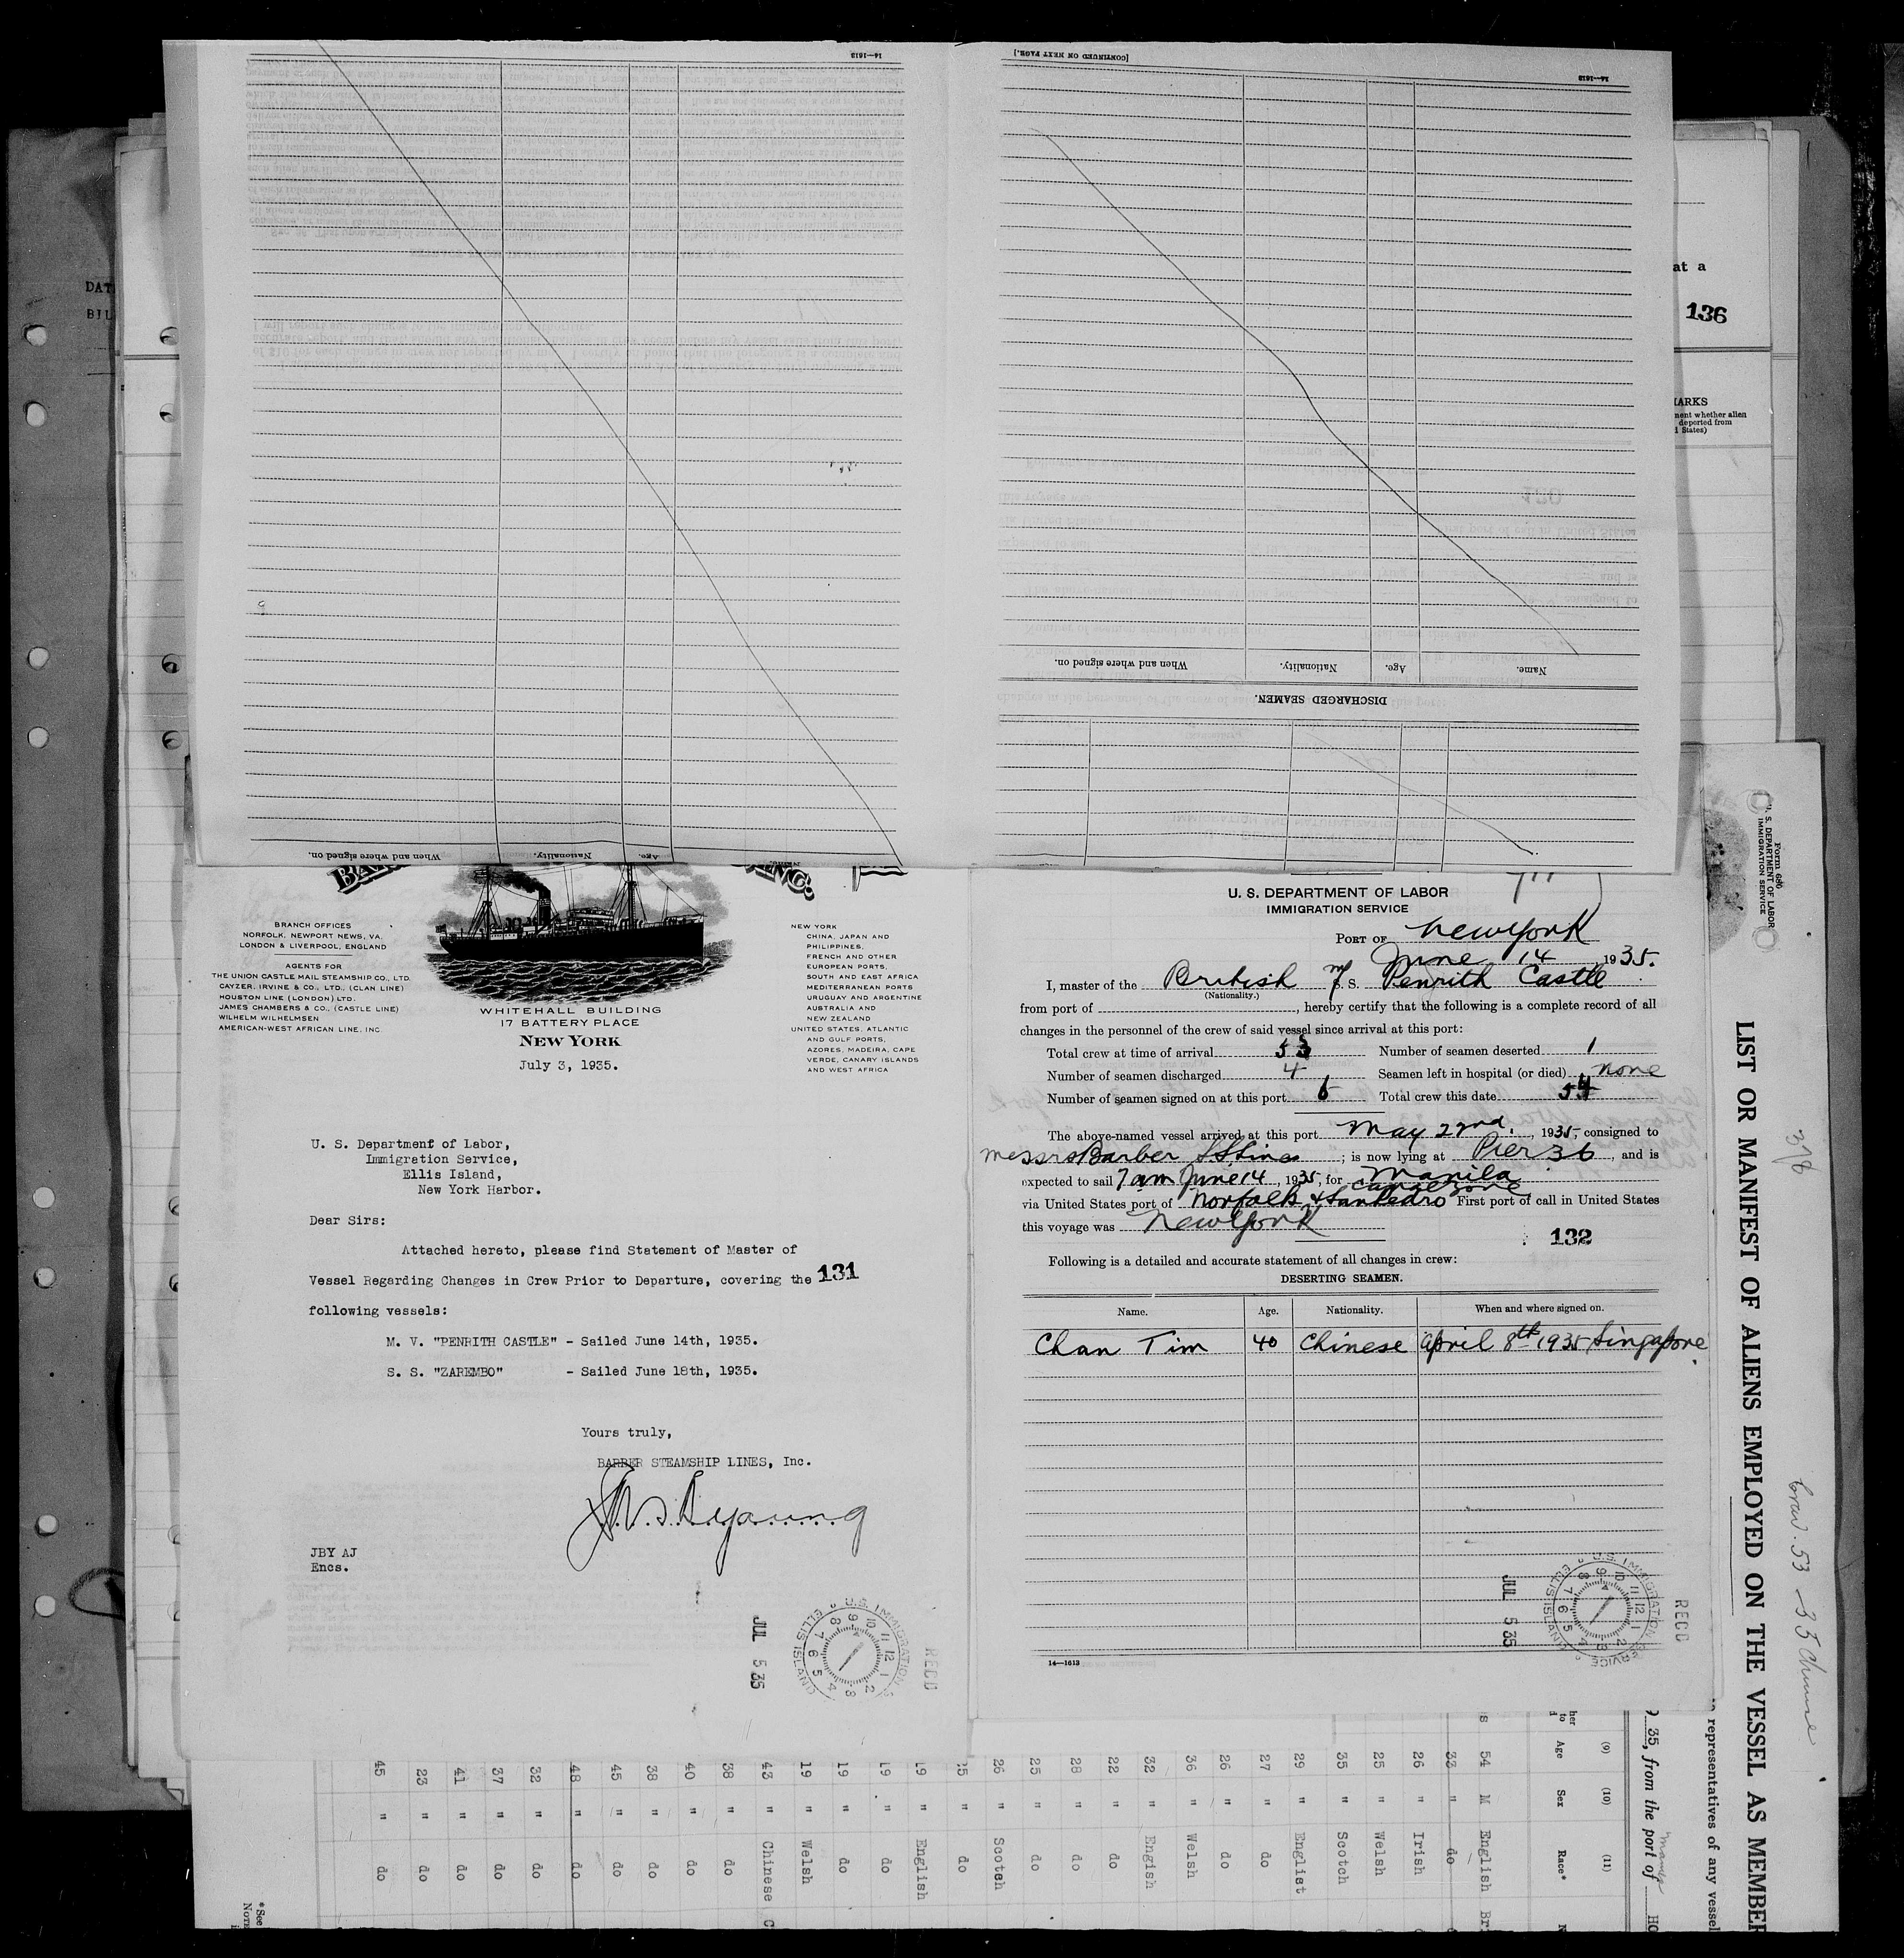 14—1613
[CONTINUED ON NEXT PAGE.]
14—1613
When and where signed on.
Nationality.
Age.
Name.
DISCHARGED SEAMEN.
When and where signed on.
Nationality.
Age.
at a
136
ARKS
ment whether alien
deported from
States)
BRANCH OFFICES
NORFOLK, NEWPORT NEWS, VA.
LONDON & LIVERPOOL, ENGLAND
AGENTS FOR
THE UNION CASTLE MAIL STEAMSHIP CO., LTD.
CAYZER, IRVINE & CO., LTD., (CLAN LINE)
HOUSTON LINE (LONDON) LTD.
JAMES CHAMBERS & CO., (CASTLE LINE)
WILHELM WILHELMSEN
AMERICAN-WEST AFRICAN LINE, INC.
WHITEHALL BUILDING
17 BATTERY PLACE
NEW YORK
July 3, 1935.
NEW YORK
CHINA, JAPAN AND
PHILIPPINES,
FRENCH AND OTHER
EUROPEAN PORTS,
SOUTH AND EAST AFRICA
MEDITERRANEAN PORTS
URUGUAY AND ARGENTINE
AUSTRALIA AND
NEW ZEALAND
UNITED STATES, ATLANTIC
AND GULF PORTS,
AZORES, MADEIRA, CAPE
VERDE, CANARY ISLANDS
AND WEST AFRICA
U. S. Department of Labor,
Immigration Service,
Ellis Island,
New York Harbor.
Dear Sirs:
Attached hereto, please find Statement of Master of
Vessel Regarding Changes in Crew Prior to Departure, covering the 131
following vessels:
M. V. "PENRITH CASTLE" - Sailed June 14th, 1935.
S. S. "ZAREMBO" - Sailed June 18th, 1935.
Yours truly,
BARBER STEAMSHIP LINES, Inc.
JBY AJ
Encs.
JUL 5 35
U.S. IMMIGRATION SERVICE
ELLIS ISLAND
RECD
U. S. DEPARTMENT OF LABOR
IMMIGRATION SERVICE
PORT OF New York
June 14 1935.
I, master of the British M S. Penrith Castle
(Nationality.)
from port of , hereby certify that the following is a complete record of all
changes in the personnel of the crew of said vessel since arrival at this port:
Total crew at time of arrival 53 Number of seamen deserted 1
Number of seamen discharged 4 Seamen left in hospital (or died) none
Number of seamen signed on at this port 6 Total crew this date 54
The above-named vessel arrived at this port May 22nd, 1935, consigned to
Messrs Barber SS Lines ; is now lying at Pier 36, and is
expected to sail 7am June 14, 1935, for Manila
canal zone
via United States port of Norfolk & San Pedro First port of call in United States
this voyage was New York
132
Following is a detailed and accurate statement of all changes in crew:
DESERTING SEAMEN.
Name. Age. Nationality. When and where signed on.
Chan Tim 40 Chinese April 8th 1935 Singapore
JUL 5 35
U.S. IMMIGRATION SERVICE
ELLIS ISLAND
RECD
14—1613
Form 680
U. S. DEPARTMENT OF LABOR
IMMIGRATION SERVICE
LIST OR MANIFEST OF ALIENS EMPLOYED ON THE VESSEL AS MEMBER
378
Crew. 53 - 33 Chinese
representatives of any vessel
35, from the port of
(9) (10) (11)
Age Sex Race*
54 M English
33 " do
26 " Irish
25 " Welsh
35 " Scotch
29 " Englist
27 " do
26 " do
36 " Welsh
32 " Engish
22 " do
28 " do
25 " do
26 " Scotch
do
English
do
19 " do
19 " Welsh
43 " Chinese
38 " do
40 " do
38 " do
45 " do
48 " do
32 " do
37 " do
41 " do
23 " do
45 " do
*See